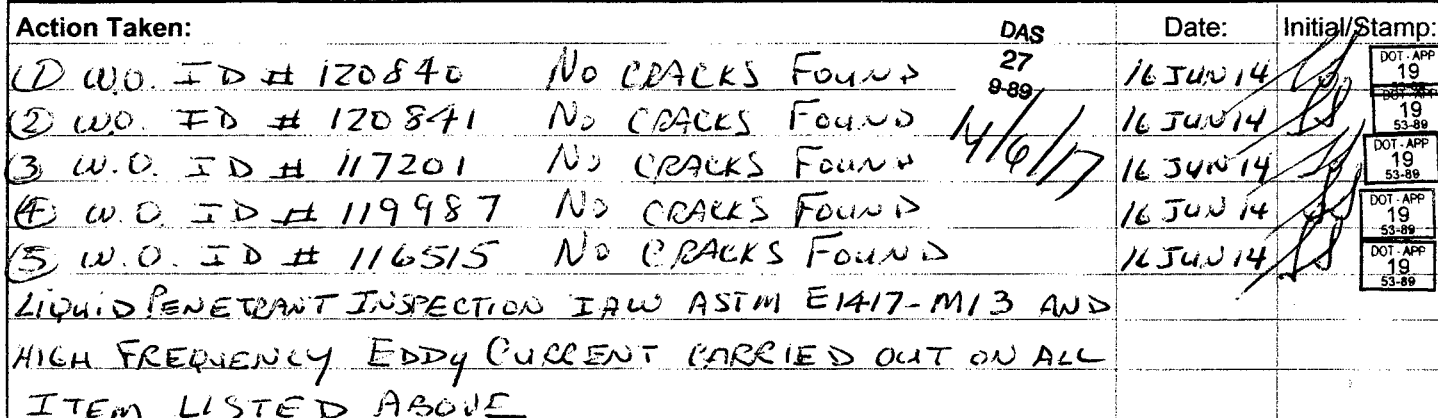 Action Taken: DAS Date: Initial/Stamp:
① W.O. ID # 120840 No CRACKS FOUND 27 16 JUN 14 DOT-APP 19
9-89
② W.O. ID # 120841 No CRACKS FOUND 14/6/17 16 JUN 14 19 53-89
③ W.O. ID # 117201 No CRACKS FOUND 16 JUN 14 DOT-APP 19 53-89
④ W.O. ID # 119987 No CRACKS FOUND 16 JUN 14 DOT-APP 19 53-89
⑤ W.O. ID # 116515 No CRACKS FOUND 16 JUN 14 DOT-APP 19 53-89
LIQUID PENETRANT INSPECTION IAW ASTM E1417-M13 AND
HIGH FREQUENCY EDDY CURRENT CARRIED OUT ON ALL
ITEM LISTED ABOVE